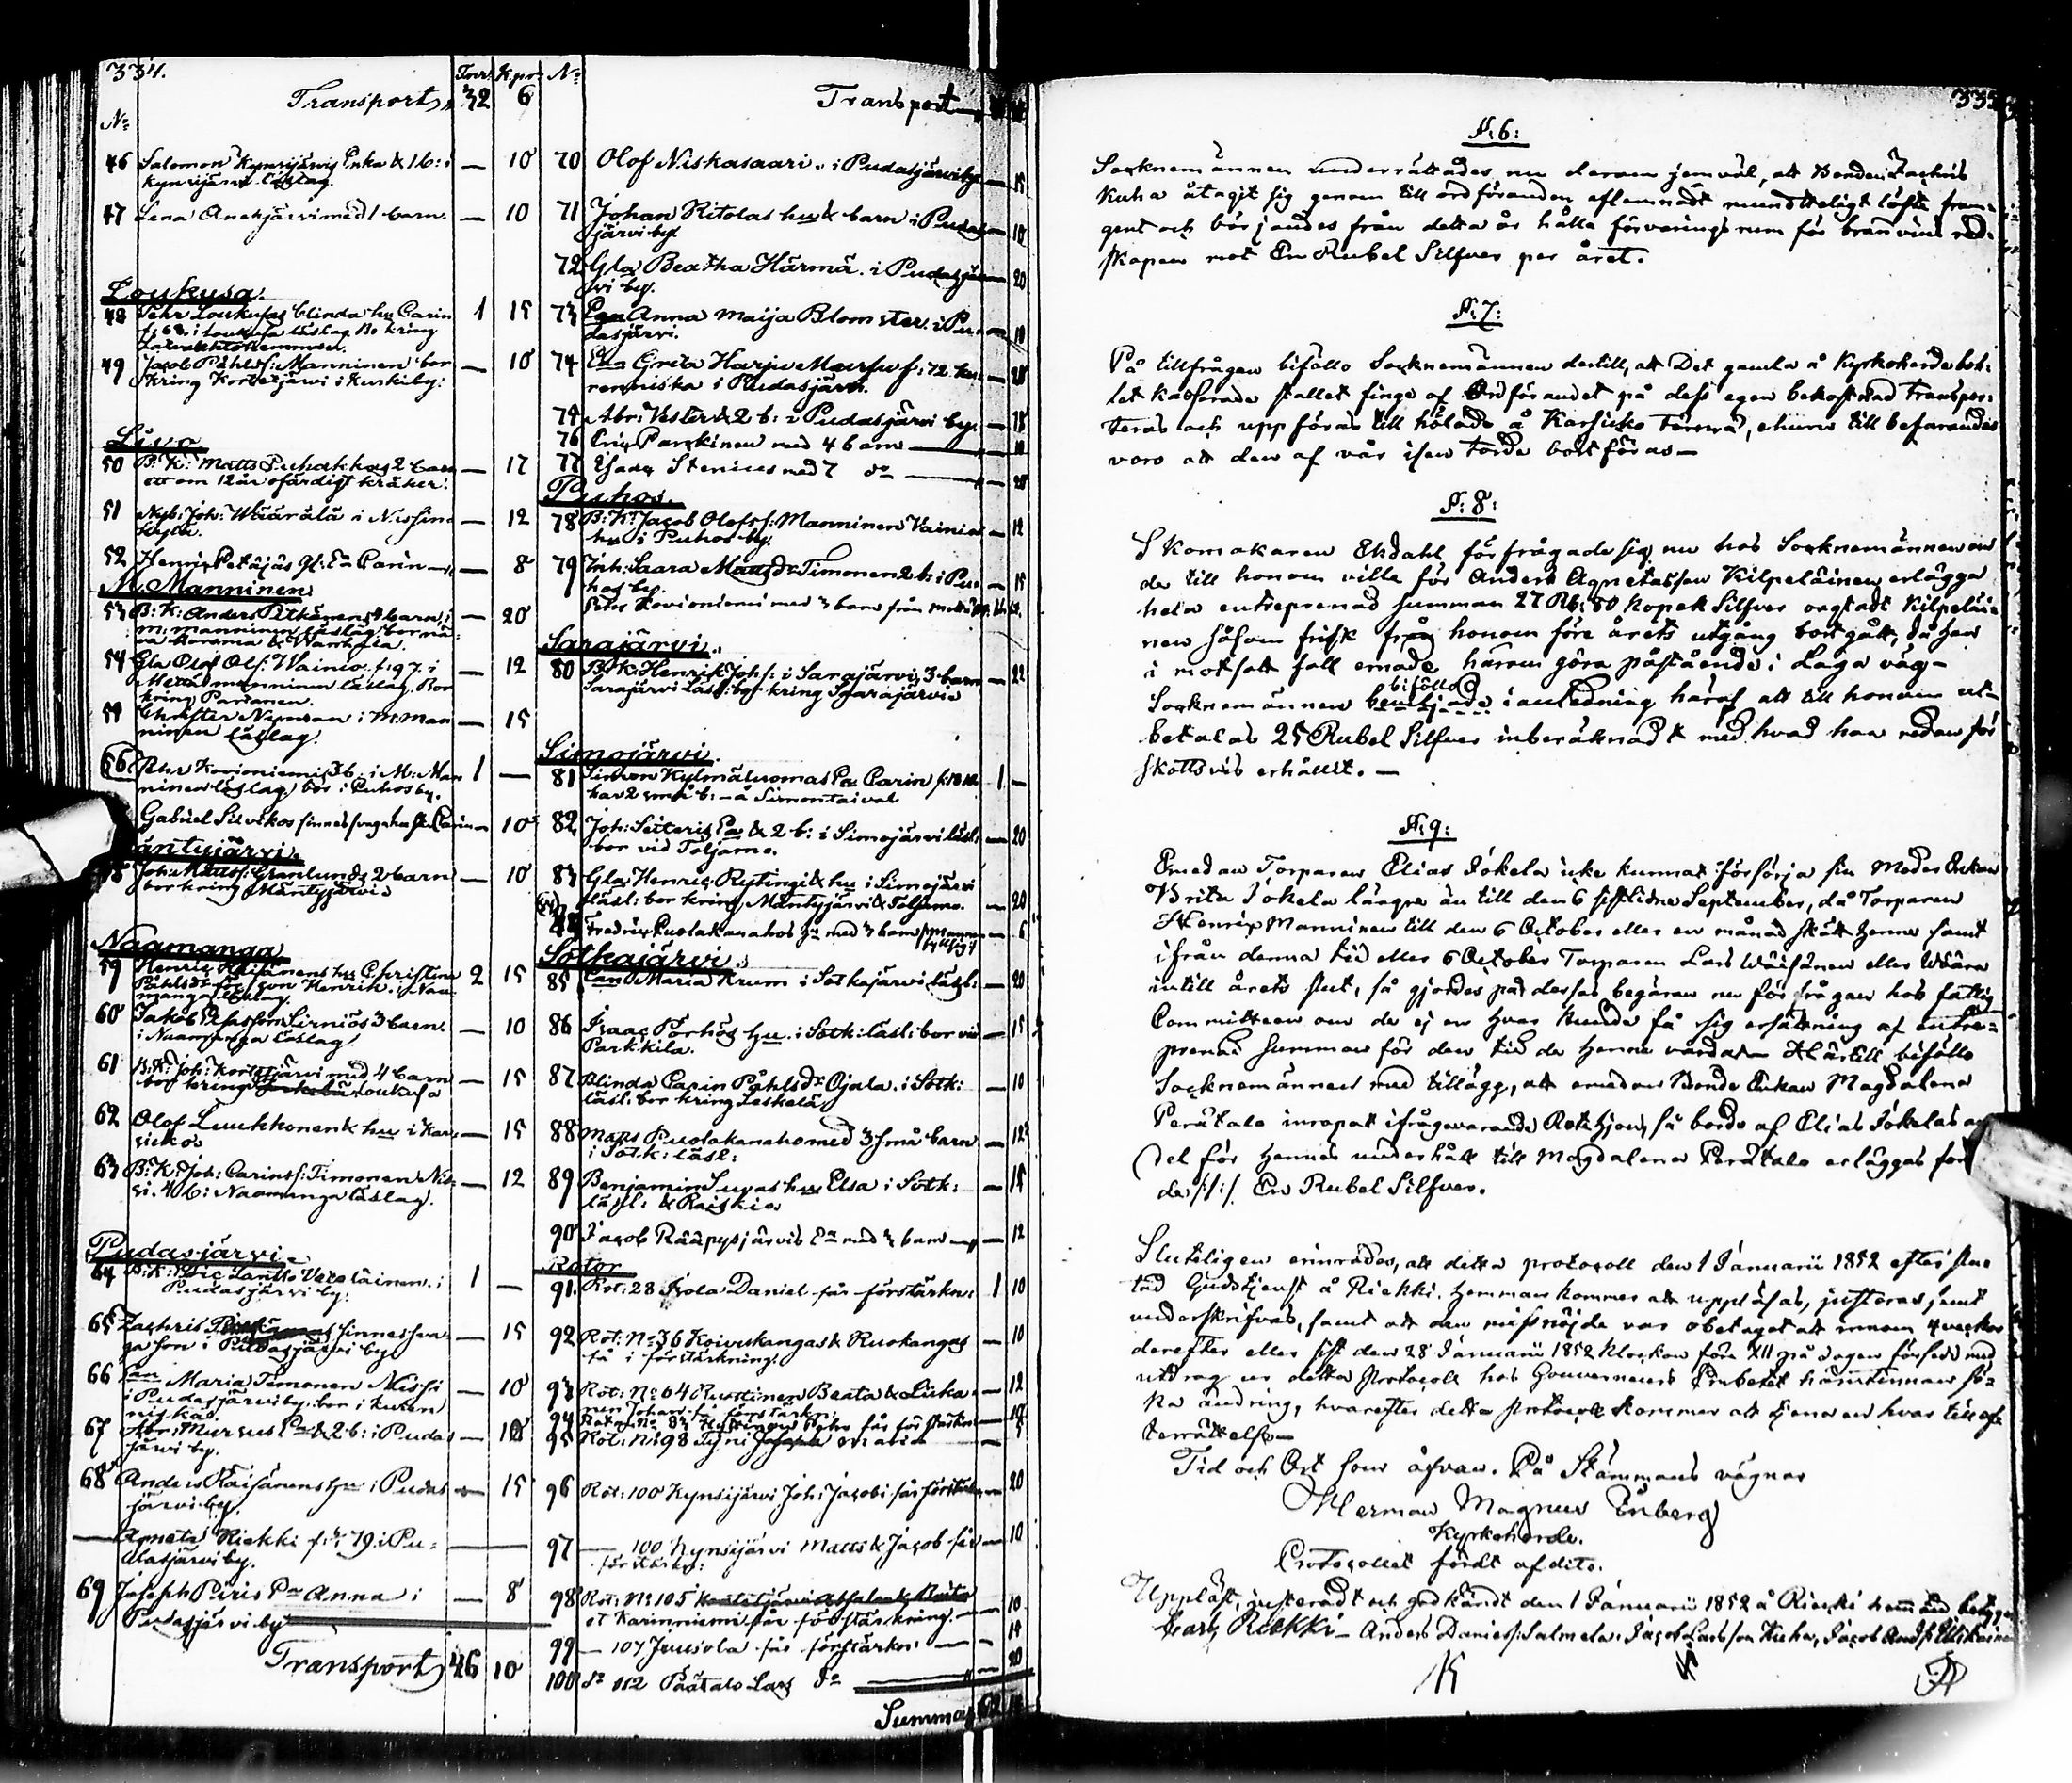 334.
Tnr. K.pr. No
Transport, 32 6
No
46 Salomon Kynsijärvis Enka & 1 b: i — 10
Kynsijärvi läslag.
47 Lena Anetjärvi med 1 barn. — 10
Loukusa.
48 Pehr Loukusas blinda hu Carin 1 15
i Loukusa läslag Bo kring
49 Jacob Påhls: Manninen bor — 10
kring Korvetjärvi i Kurkiby:
Livo
50 B: K: Matts Puhakkas 2 barn — 17
ett om 12 år ofärdigt kräker:
51 Nyb: Joh: Wäärälä i Nissin — 12
52 Henric Petäjäs Gl: Ea Carin — 8
M. Manninen
53 B: K: Anders Pitkänens 4 barn i — 20
M: Manninen läslag, bor
54 Gla Olof Ols: Wainio f. 97. i — 12
Matts manninen läslag. Bor
kring Parianen.
55 Christer Nyman i M: Man — 15
ninen läslag.
56 Pehr Korvioniemi 3 b. i M: Man 1 —
ninen läslag) bor i Puhosby.
Gabriel Sirvikos sinnessvaga hu Carin — 10
Mäntyjärvi.
58 Joh: Matts: Granlunds 2 barn — 10
bor kring Mäntyjärvi
Naamanga
59 Henric Räisänens hu Christina 2 15
Påhlsdr för son Henrik. i Naa
manga läslag.
60 Jakob Esasson Sirniös 3 barn. — 10
i Naamanga läslag.
61 B: K: Joh: Kortejärvi med 4 barn — 15
bor kring Loukusa
62 Olof Luukkonen & hu i Kar — 15
sicko
63 B: K: Joh: Carins s: Timonen Nis — 12
si. 4 b: Naamanga läslag.
Pudasjärvi
64 B: K: Eric Lantto Vesaläinen. i 1 —
Pudasjärvi by.
65 Zachris sinnessva — 15
ga son i Pudasjärvi by
66 Ean Maria Timonen Nissi — 10
i Pudasjärviby. bor i Kuren
niskas.
67 Abr: Mursus Ea & 2 b: i Pudas — 10
järvi by.
68 Anders Räisänens hu i Pudas — 15
järvi by.
— Agneta Riekki f. 79 i Pu: —
dasjärvi by.
69 Joseph Piris Pa Anna i — 8
Pudasjärvi by
Transport, 46 10
Transport
70 Olof Niskasaari. i Pudasjärvi by — 15
71 Johan Ritolas hu & barn i Pudas — 10
järvi by
72 Gla Beatha Härmä. i Pudasjär — 20
vi by.
73 Ean Anna Maija Blomster. i Pu — 10
dasjärvi.
74 Ean Greta Harju Mursu f: 72 ku — 20
renniska i Pudasjärvi.
75 Abr: Vester & 2 b: i Pudasjärvi by. — 18
76 Eric Parkkinen med 4 barn — 10
77 Esaias Stenius med 7 do — 20
Puhos.
78 B: K: Jacob Olofs s: Manninen Vainios — 12
hu i Puhos by.
79 Inh: Saara Mattsdr Timonen 2 b: i Pu — 15
hos by.
Pehr Kovioniemi med 3 barn från
Sarajärvi.
80 B: K: Henrik Johs: i Sarajärvi, 3 barn — 22
Sarajärvi Läsl: bor kring Sarajärvi
Simojärvi
81 Simon Kylmäluomas Ea Carin f: 1 —
har 2 små b: — å Simontaival
82 Joh: Seiteris Ea & 2 b: i Simojärvi läsl: — 20
bor vid Toljamo.
83 Gla Henric Rytingi & hu i Simojärvi
läsl: bor kring Mäntyjärvi & Toljamo. — 20
84 Fredric Puolakanahos hu med 3 barn — 6
Sotkajärvi.
85 Ean Maria Krum i Sotkajärvi läsl: — 20
86 Isaac Pörhös hu. i Sotk: läsl: bor vid — 15
Parkkila.
87 Blinda Carin Påhlsdr Ojala. i Sotk: — 10
läsl: bor kring Leskelä
88 Matts Puolakanaho med 3 små barn — 12
i Sotk: läsl:
89 Benjamin Suvas hu Elsa i Sotk: — 15
läsl: & Raiskio
90 Jacob Rääpysjärvis Ea med 3 barn — 12
Rotor
91. Rot: 28 Isola Daniel får förstärkn: 1 10
92 Rot: No 36 Koivukangas & Ruokangas — 10
få i förstärkning.
93 Rot: No 64 Ruottinen Beata & Liika — 12
nen Johan få förstärkn:
94 Rot: No 83 Pehr får förstärkn — 18
95 Rot: No 98 Tyni Maria —
96 Rot: 100 Kynsijärvi Joh: Jacobi får förstärkn — 20
97 — 100 Kynsijärvi Matts & Jacob får — 10
förstärkn:
98 Rot: No 105
et Karinniemi får förstärkning. — 10
99 — 107 Juusola får förstärkn: — 14
100 do 112 Päätalo Lars do — 20
Summa
335
§: 6:
Socknemännen underrättades nu derom jemväl, att Bonden Zachris
Kuha åtagit sig genom till ordföranden aflemnadt mundtteligt löfte fram-
gent och börjandes från detta år hålla förvaringsrum för bränvins red-
skapen mot En Rubel Silfver per året.
§: 7:
På tillfrågan biföllo Socknemännen dertill, att Det gamla å Kyrkoherde bol-
let kasserade stallet finge af Ordförandet på dess egen bekostnad transpor-
teras och uppföras till hölada å Karsicko Törmä, ehuru till befarandes
voro att den af vår isen torde bortföras —
§: 8:
Skomakaren Ekdahl förfrågade sig nu hos Socknemännen om
de till honom ville för Anders Agnetasson Kilpeläinen erlägga
hela entreprenad summan 27 Rb: 80 Kopek Silfver oagtadt Kilpeläi-
nen såsom frisk från honom före årets utgång bortgått, då han
i motsatt fall ernade härom göra påstående i Laga väg —
biföllo
Socknemännen i anledning häraf att till honom ut-
betalas 25 Rubel Silfver inberäknadt med hvad han redan för
skottsvis erhållit. —
§: 9:
Emedan Torparen Elias Jokela icke kunnat försörja sin Moder Enkan
Brita Jokela längre än till den 6 sistlidne September, då Torparen
Henric Manninen till den 6 October eller en månad skött henne samt
ifrån denna tid eller 6 October Torparen Lars Wäisänen eller Wäära
intill årets slut, så gjordes på dessas begäran nu förfrågan hos fattig
Committeen om de ej en hvar kunde få sig ersättning af entre-
prenad summan för den tid de henne vårdat — Härtill biföllo
Socknemännen med tillägg, att emedan Bonde Enkan Magdalena
Perätalo inropat ifrågavarande Rotehjon, så borde af Elias Jokelas an
del för hennes underhåll till Magdalena Perätalo erläggas för
de /:/:/ En Rubel Silfver.
Sluteligen erinrades, att detta protocoll den 1 Januarii 1852 efter slu-
tad Gudstjenst å Riekki hemman kommer att uppläsas, justeras samt
underskrifvas, samt att den missnöjde vore obetaget att innom 4 veckor
derefter eller sist den 28 Januarii 1852 Klockan före XII på dagen försedd med
utdrag ur detta Protocoll hos Gouverneurs Embetet härutinnan sö-
ka ändring, hvarefter detta protocoll kommer att tjena en hvar till efter-
terrättelse —
Tid och Ort som åfvan. På Stämmans vägnar
Herman Magnus Enberg
Kyrkoherde.
Protocollet fördt af dito.
Uppläst, justeradt och godkändt den 1 Januarii 1852 å Riecki hemman betyga
Lars Riekki — Anders Daniels: Salmela. Jacob Larsson Kuha, Jacob